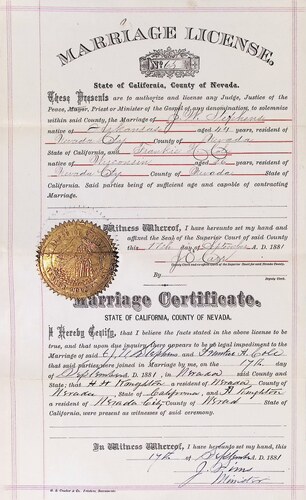 MARRIAGE LICENSE,
No. 65
State of California, County of Nevada.
These Presents are to authorize and license any Judge, Justice of the
Peace, Mayor, Priest or Minister of the Gospel of any denomination, to solemnize
within said County, the Marriage of J. W. Stephens
native of Arkansas, aged 44 years, resident of
Nevada City County of Nevada
State of California, and Frankie H. Cole
native of Wisconsin aged 26 years, resident of
Nevada City, County of Nevada, State of
California. Said parties being of sufficient age and capable of contracting
Marriage.
In Witness Whereof, I have hereunto set my hand and
affixed the Seal of the Superior Court of said County
this 17th day of September A. D. 1881
By J. E.
Marriage Certificate.
STATE OF CALIFORNIA, COUNTY OF NEVADA.
I Hereby Certify, that I believe the facts stated in the above license to
be true, and that upon due inquiry there appears to be no legal impediment to the
Marriage of said J. W. Stephens and Frankie H. Cole
that said parties were joined in Marriage by me, on the 17th day
of September A. D. 1881, in Nevada said County and
State; that H. H. a resident of Nevada County of
Nevada, State of California, and
a resident of Nevada City County of State of
California, were present as witnesses of said ceremony.
In Witness Whereof, I have hereunto set my hand, this
17th day of September A. D. 1881
J. Sims
Minister